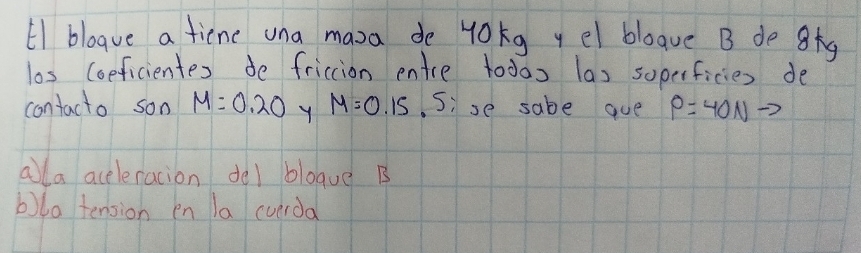 El bloque a tiene una masa de 40kg y el bloque B de 8kg
los coeficientes de friccion entre todas las superficies de
contacto son M=0.20 y M=0.15. Si se sabe que P=40N →
a) La aceleracion del bloque B
b) La tension en la cuerda